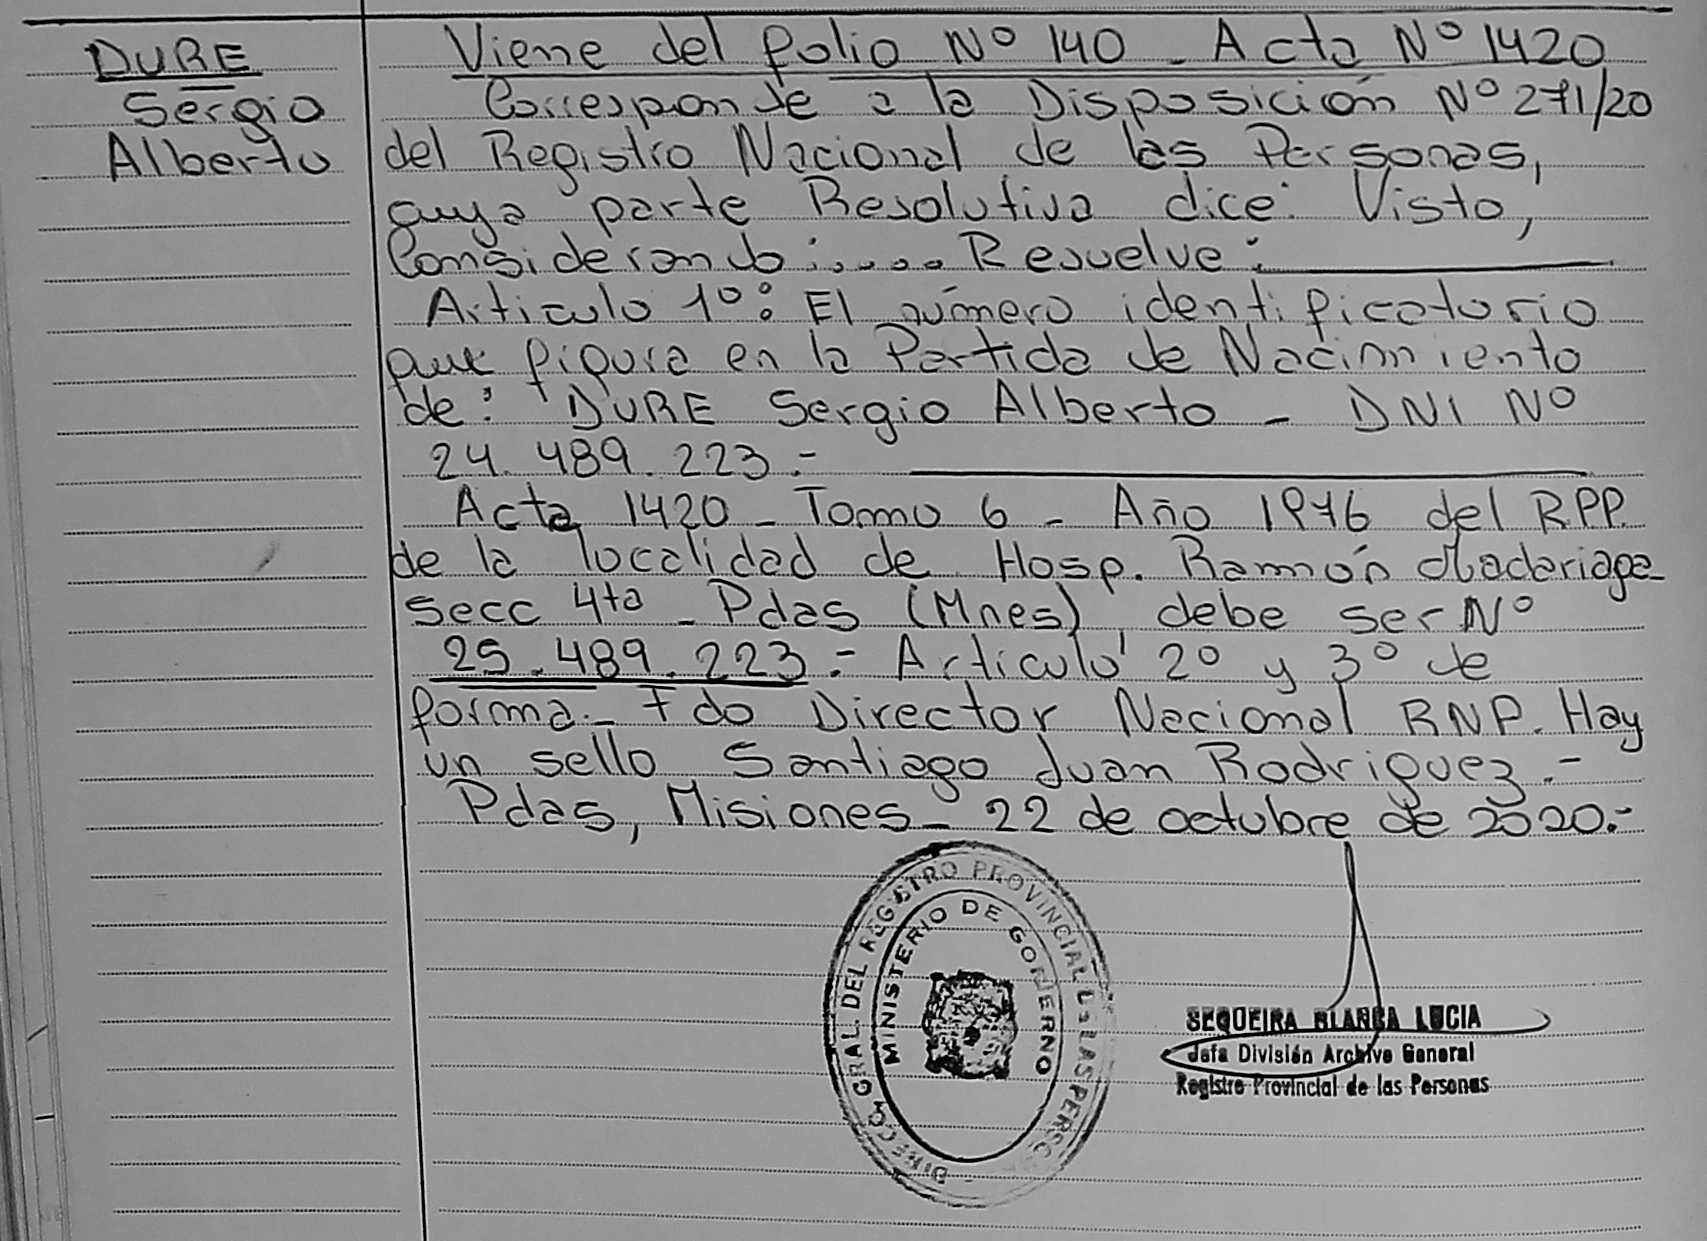 DURE
Sergio
Alberto
Viene del folio Nº 140 - Acta Nº 1420
Corresponde a la Disposición Nº 271/20
del Registro Nacional de las Personas,
cuya parte Resolutiva dice: Visto,
Considerando:.... Resuelve:
Articulo 1º: El número identificatorio
que figura en la Partida de Nacimiento
de: DURE Sergio Alberto - DNI Nº
24.489.223.-
Acta 1420 - Tomo 6 - Año 1976 del RPP.
de la localidad de Hosp. Ramón Madariaga
Secc 4ta - Pdas (Mnes), debe ser Nº
25.489.223.- Articulo 2º y 3º de
forma.- Fdo Director Nacional RNP. Hay
un sello Santiago Juan Rodriguez.-
Pdas, Misiones - 22 de octubre de 2020.-
DIRECC. GRAL. DEL REGISTRO PROVINCIAL DE LAS PERSO
MINISTERIO DE GOBIERNO
SEQUEIRA BLANCA LUCIA
Jefa División Archivo General
Registro Provincial de las Personas